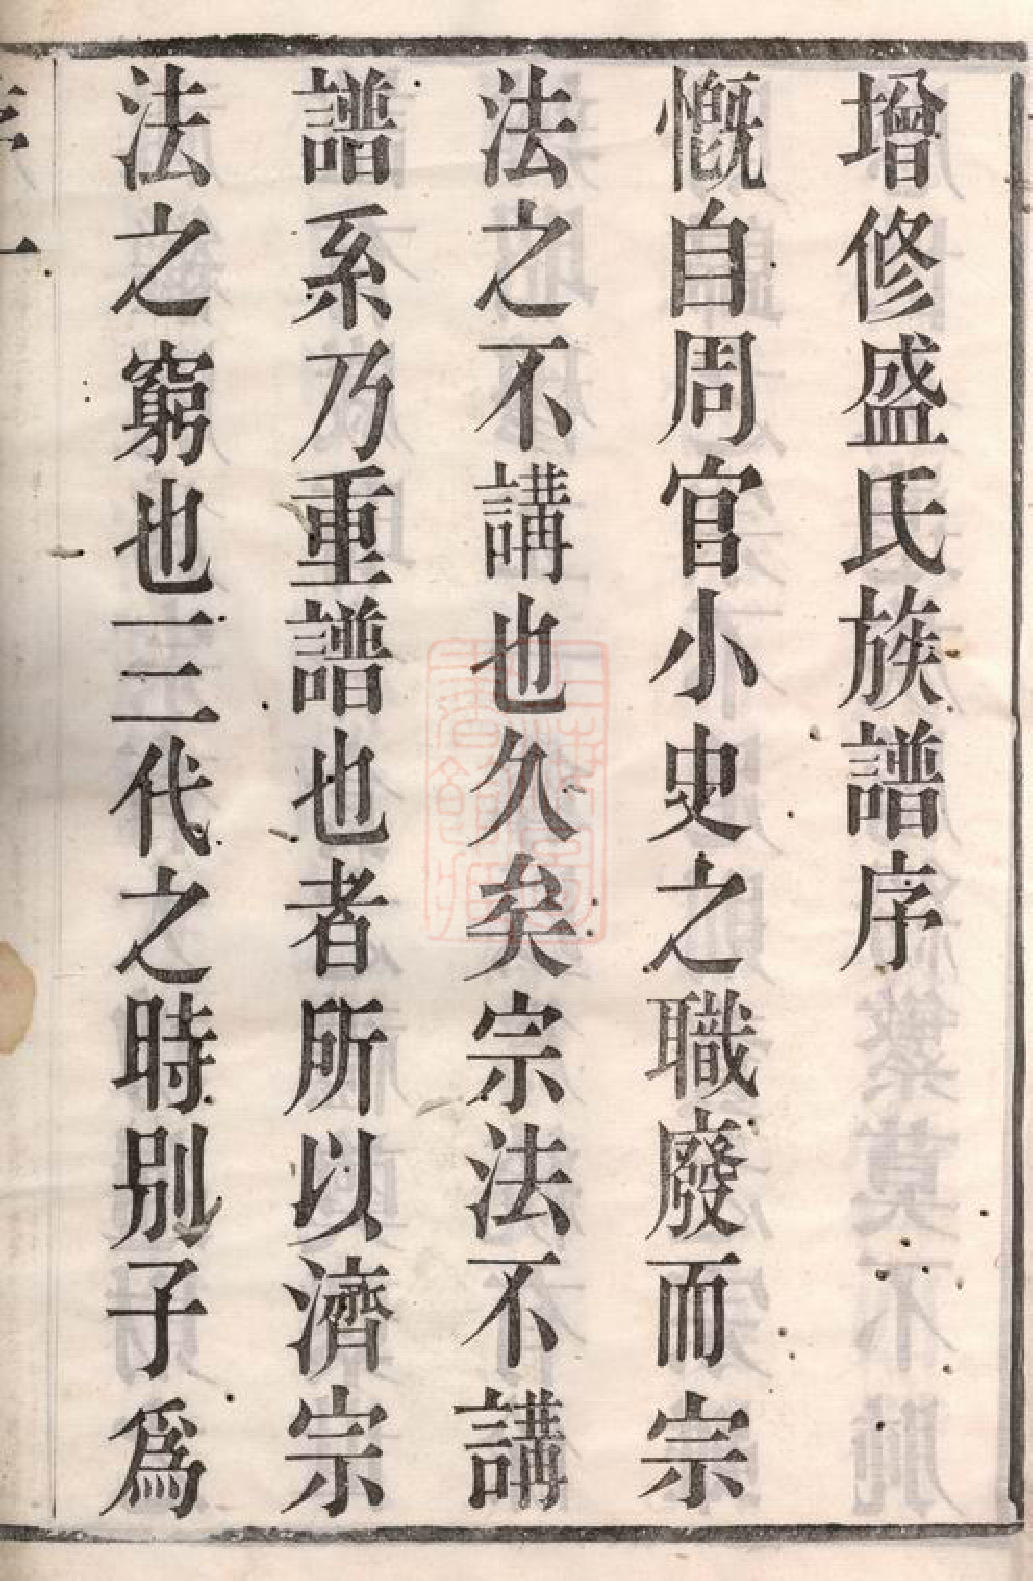 增修盛氏族譜序
慨自周官小史之職廢而宗
法之不講也久矣宗法不講
譜系乃重譜也者所以濟宗
法之窮也三代之時別子爲